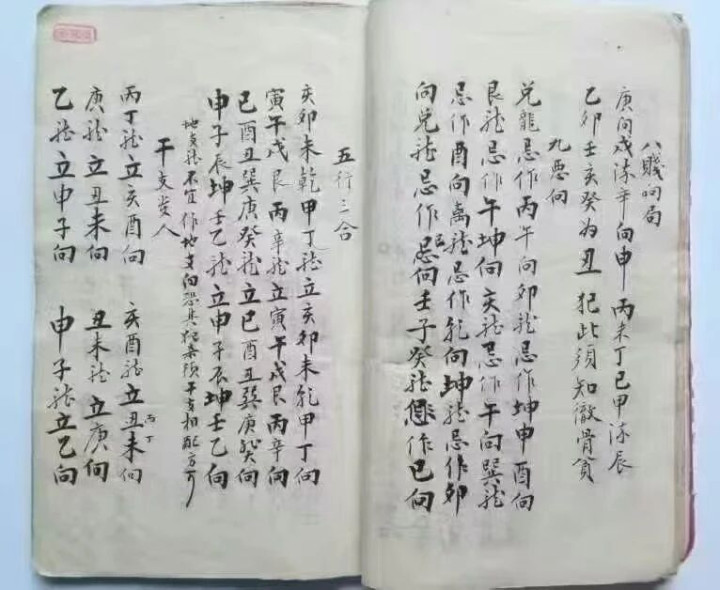 八賤向局
庚向戌流辛向申丙未丁巳甲流辰
乙卯壬亥癸為丑犯此須知徹骨貧
九惡向
兌龍忌作丙午向卯龍忌作坤申酉向
艮龍忌作午坤向亥龍忌作午向巽龍
忌作酉向离龍忌作乾向坤龍忌作卯
向兌龍忌作巳向壬子癸龍忌作巳向
五行三合
亥卯未乾甲丁龍立亥卯未乾甲丁向
寅午戌艮丙辛龍立寅午戌艮丙辛向
巳酉丑巽庚癸龍立巳酉丑巽庚癸向
申子辰坤壬乙龍立申子辰坤壬乙向
地支龍不宜作地支向恐其犯煞須干支相配方可
干支发人
丙丁龍立亥酉向 亥酉龍立丑未向
丙丁
庚龍立丑未向 丑未龍立庚向
乙龍立申子向 申子龍立乙向